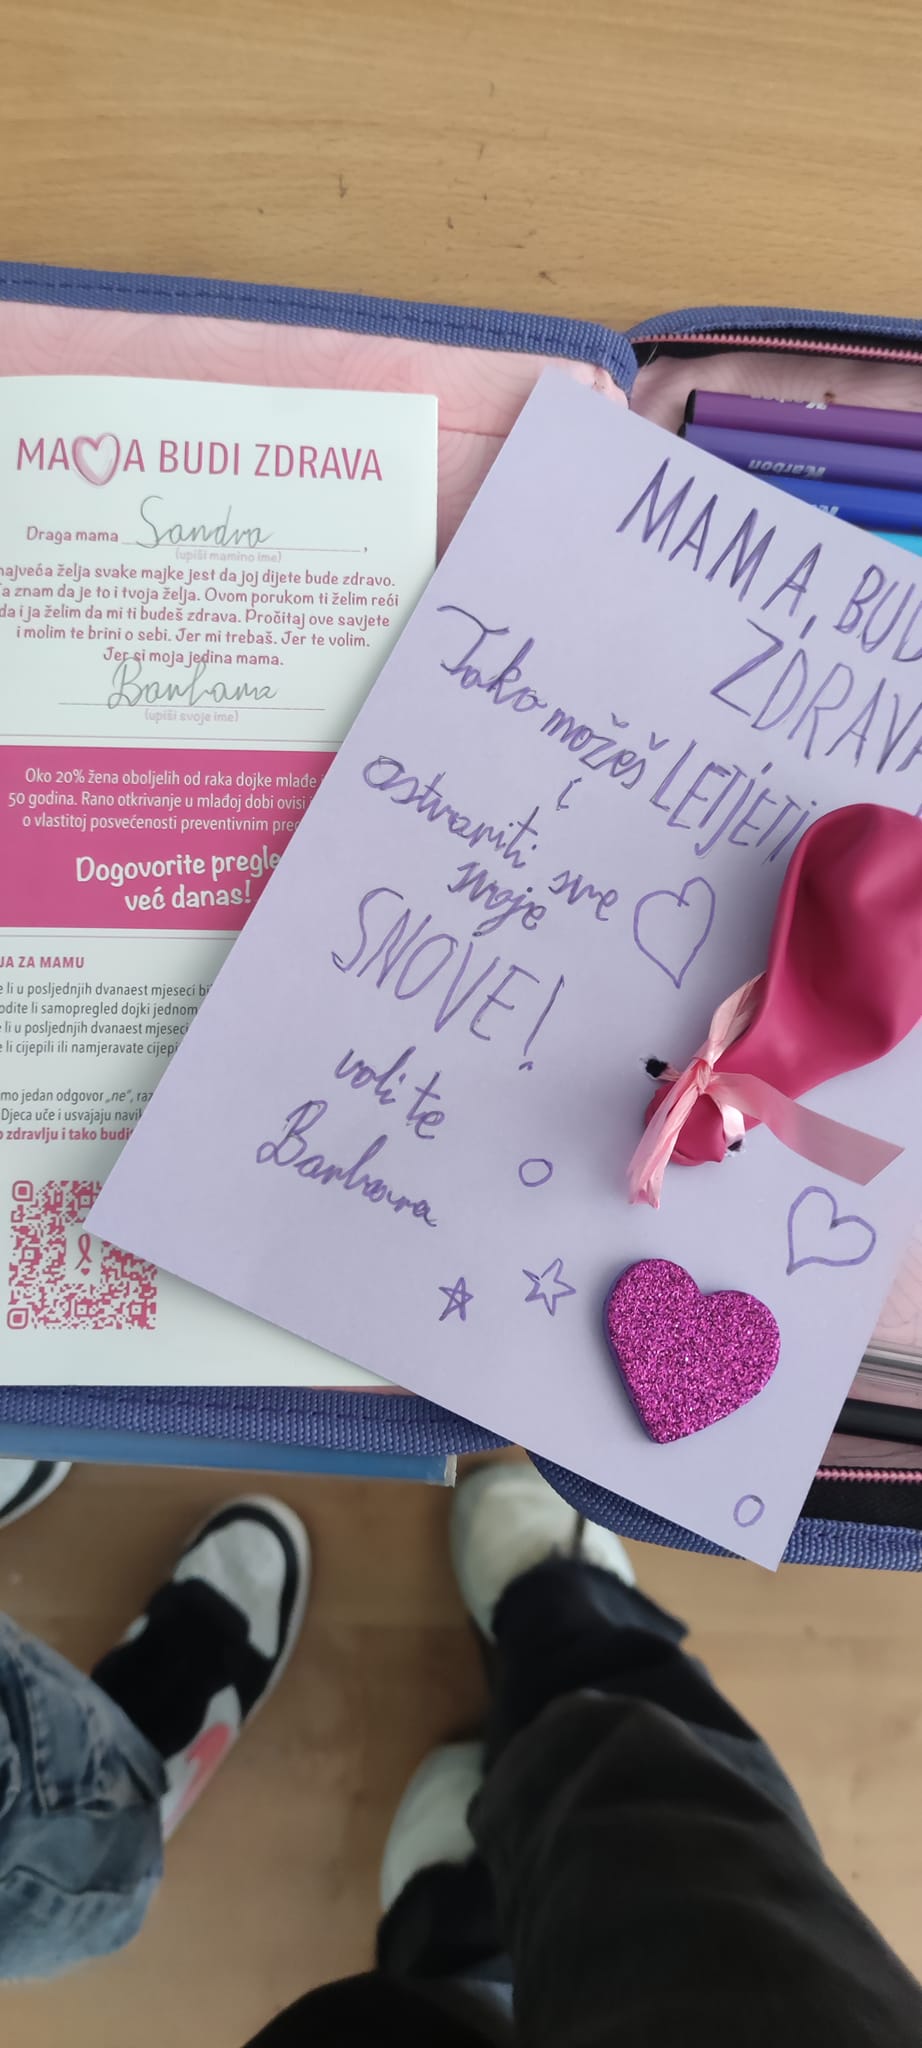 MAMA BUDI ZDRAVA
Draga mama Sandra,
(upiši mamino ime)
najveća želja svake majke jest da joj dijete bude zdravo.
Ja znam da je to i tvoja želja. Ovom porukom ti želim reći
da i ja želim da mi ti budeš zdrava. Pročitaj ove savjete
i molim te brini o sebi. Jer mi trebaš. Jer te volim.
Jer si moja jedina mama.
Barbara
(upiši svoje ime)
Oko 20% žena oboljelih od raka dojke mlađe
50 godina. Rano otkrivanje u mlađoj dobi ovisi
o vlastitoj posvećenosti preventivnim
Dogovorite
već danas!
JA ZA MAMU
li u posljednjih dvanaest mjeseci
li samopregled dojki jednom
li u posljednjih dvanaest mjeseci
li cijepili ili namjeravate
jedan odgovor „ne“,
Djeca uče i usvajaju
zdravlju i tako
MAMA, BUD
ZDRAVA
Tako možeš LETJETI
i
ostvariti sve
svoje
SNOVE!
voli te
Barbara
Karbon
Karbon